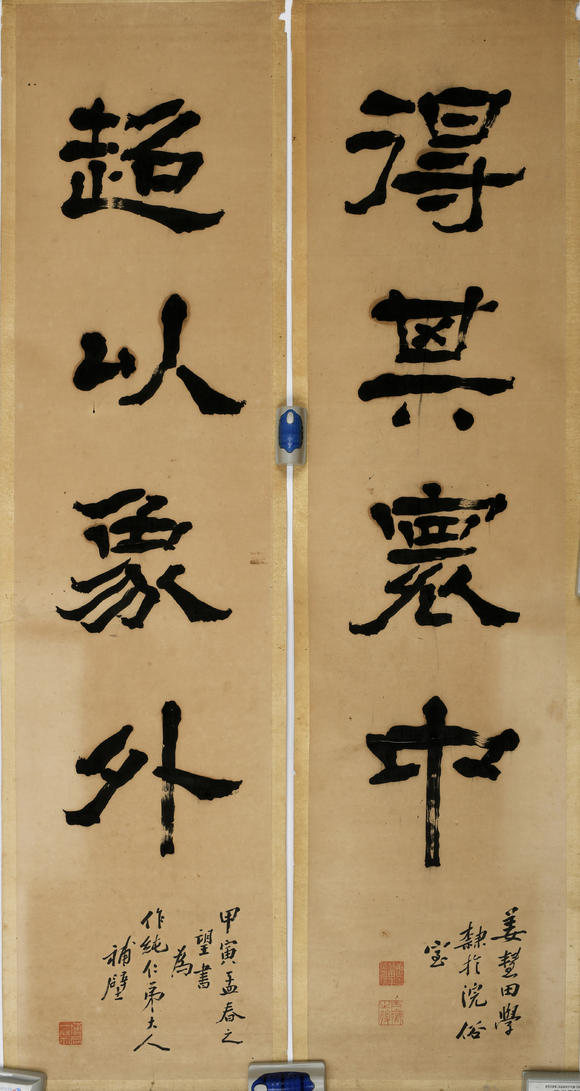 得其寰中
超以象外
姜壄田學
隸於浣俗
室
甲寅孟春之
望書
為
作純仁弟大人
補壁